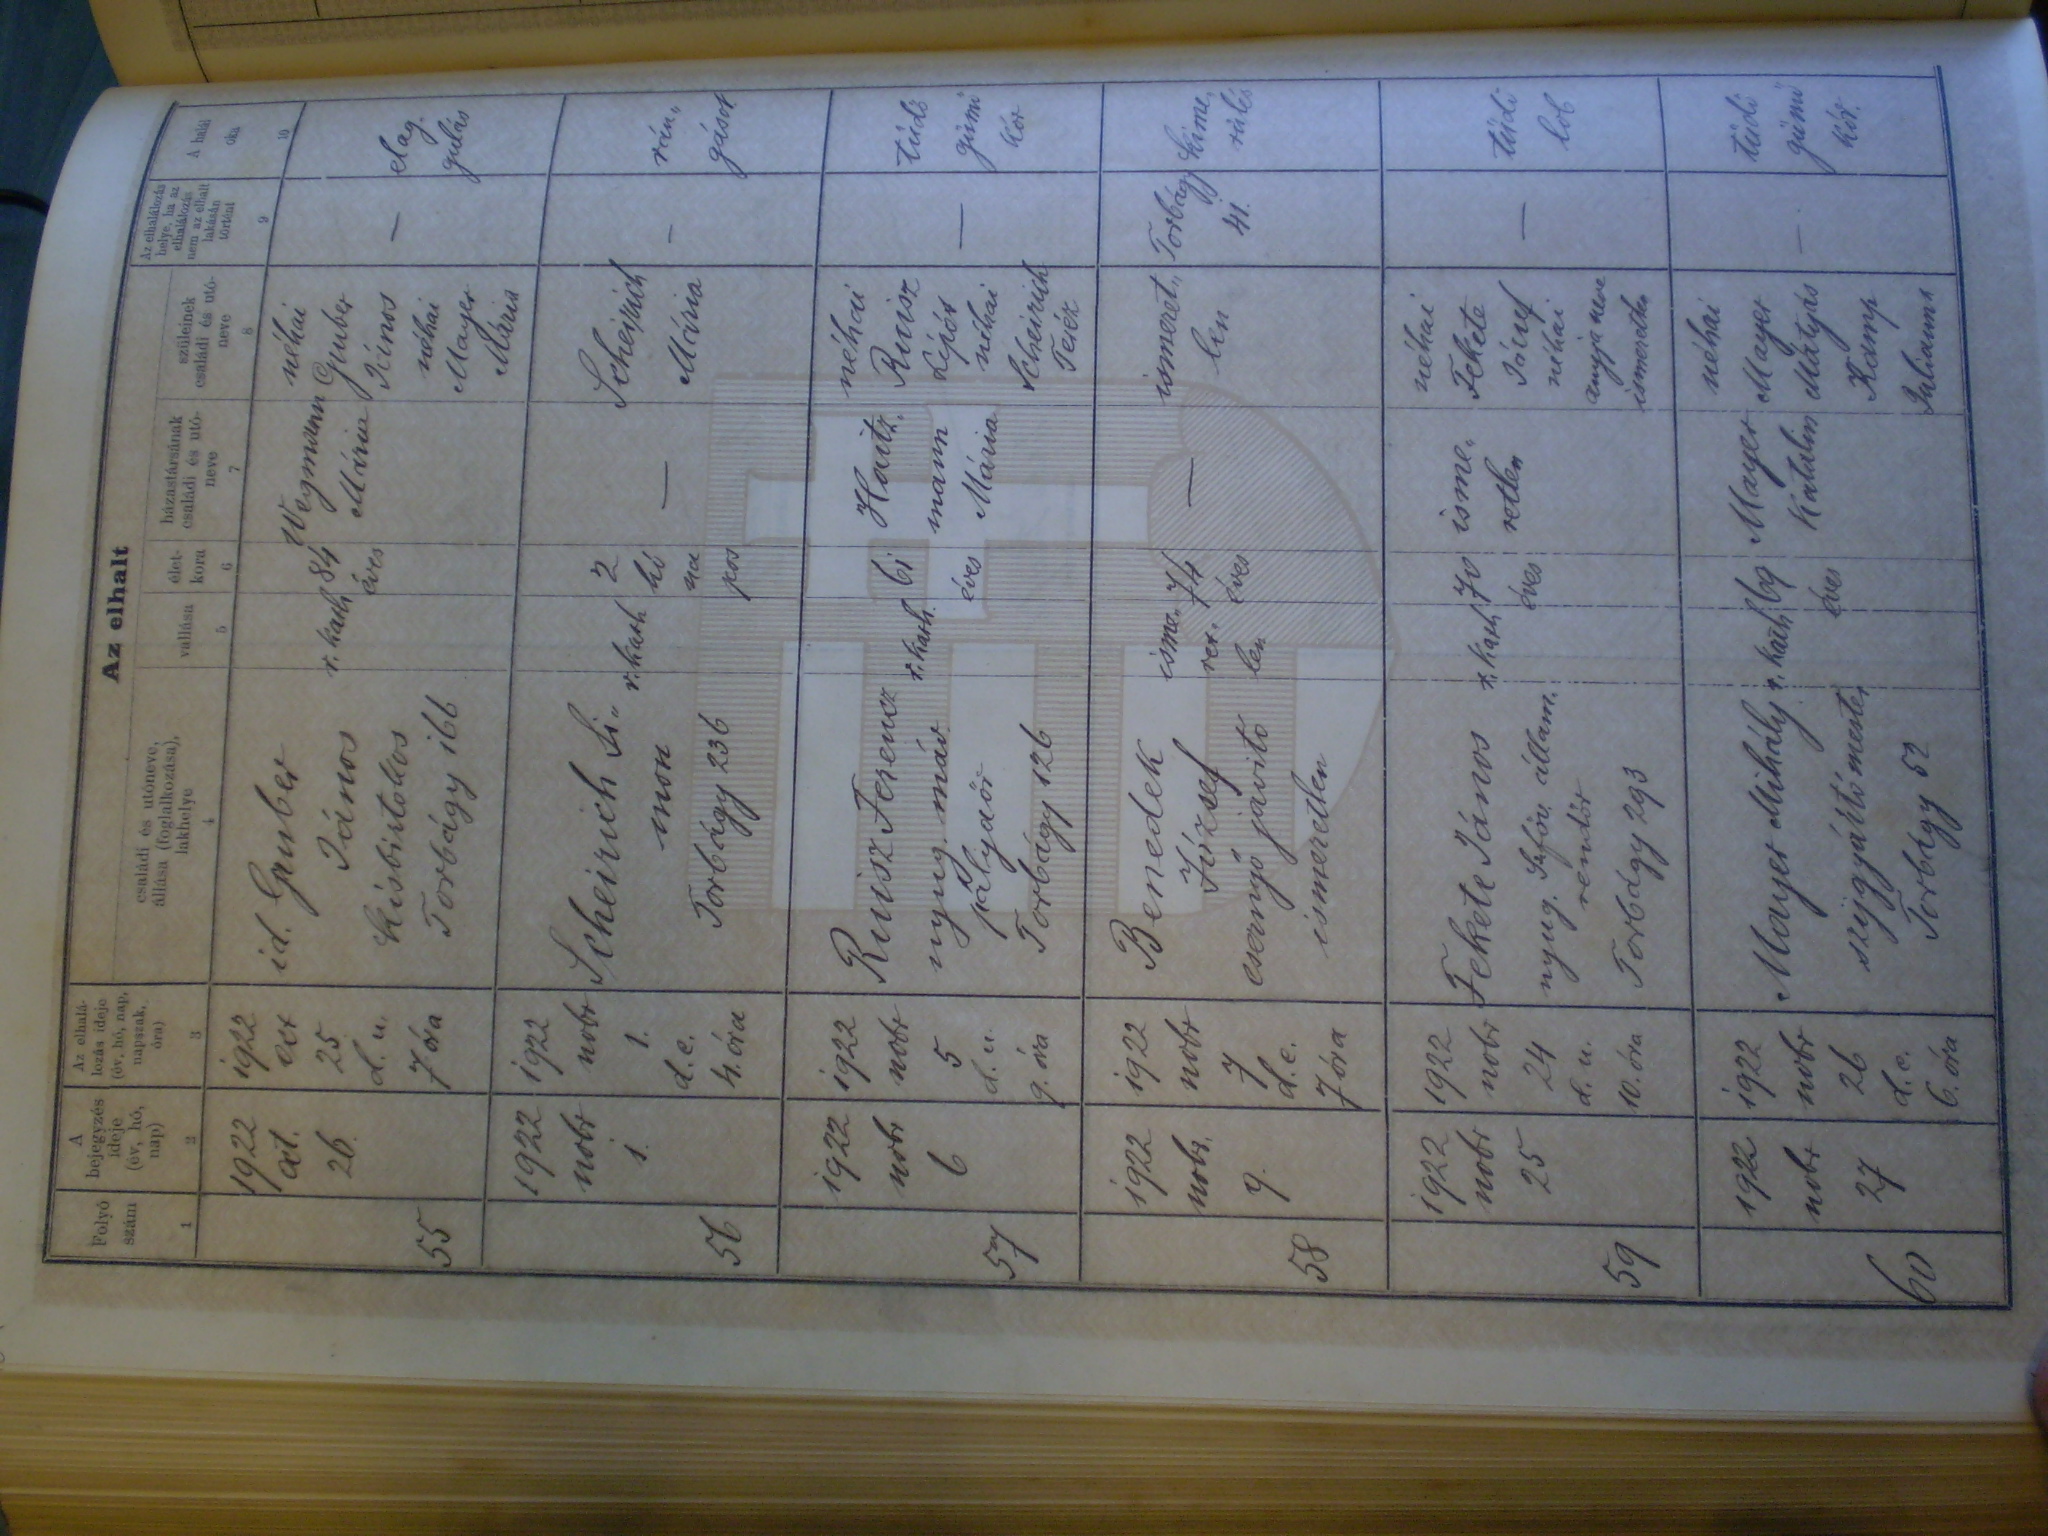 Az elhalt
Folyó
szám
A
bejegyzés
ideje
(év, hó,
nap)
Az elhalá-
lozás ideje
(év, hó, nap,
napszak,
óra)
családi és utóneve,
állása (foglalkozása),
lakhelye
vallása
élet-
kora
házastársának
családi és utó-
neve
szüleinek
családi és utó-
neve
Az elhalálozás
helye, ha az
elhalálozás
nem az elhalt
lakásán
történt
A halál
oka
1
2
3
4
5
6
7
8
9
10
55
1922
oct.
26.
1922
oct
25
d. u.
7 óra
id. Gruber
János
kisbirtokos
Torbágy 166
r. kath
84
éves
Wegmann
Mária
néhai
Gruber
János
néhai
Mayer
Mária
—
elag.
gulás
56
1922
nobr
1.
1922
nobr
1.
d. e.
4. óra
Scheirich Si„
mon
Torbágy 236
r. kath
2
hó
na
pos
—
Scheirich
Mária
—
rán„
gások
57
1922
nobr
6
1922
nobr
5
d. u.
9. óra
Ruisz Ferencz
nyug. máv
pályaőr
Torbágy 126
r. kath.
61
éves
Mária
néhai
Ruisz
Lipót
néhai
Scheirich
Teréz
—
tüdő
gümő
kór
58
1922
nobr.
9.
1922
nobr
7
d. e.
7 óra
Benedek
József
esernyő javitó
ismeretlen
isme„
ret„
len
74
éves
—
ismeret„
len
Torbágy
41.
kime„
rülés
59
1922
nobr
25
1922
nobr
24
d. u.
10. óra
Fekete János
nyug. állam.
rendőr
Torbágy 293
r. kath
70
éves
isme„
retlen
néhai
Fekete
József
néhai
anyja neve
ismeretlen
—
tüdő
lob
60
1922
nobr
27
1922
nobr
26
d. e.
6. óra
Mayer Mihály
szijgyártó mester
Torbágy 52
r. kath
69
éves
Mayer
Katalin
néhai
Mayer
Mátyás
Kamp
Juliánna
—
tüdő
gümő
kór.